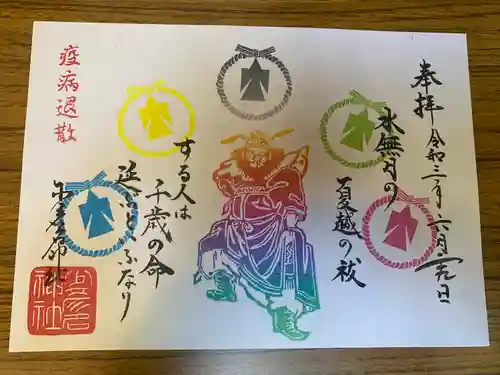 奉拝
令和三年六月三十日
水無月の
夏越の祓
する人は
千歳の命
延ぶといふなり
疫病退散